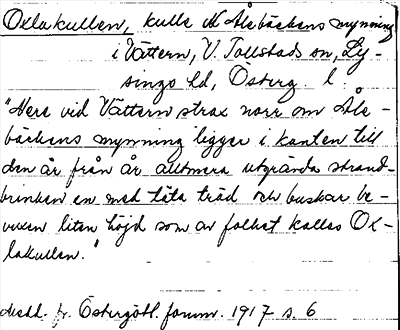 Oxlakullen, kulle N Ålebäckens mynning
i Vättern, V. Tollstads sn, Ly-
sings hd, Österg l.
"Nere vid Vättern strax norr om Åle-
bäckens mynning ligger i kanten till
den år från år alltmera utgrävda strand-
brinken en med täta träd och buskar be-
vuxen liten höjd som av folket kallas Ox-
lakullen."
Medd. fr. Östergötl. fornm. 1917 s. 6